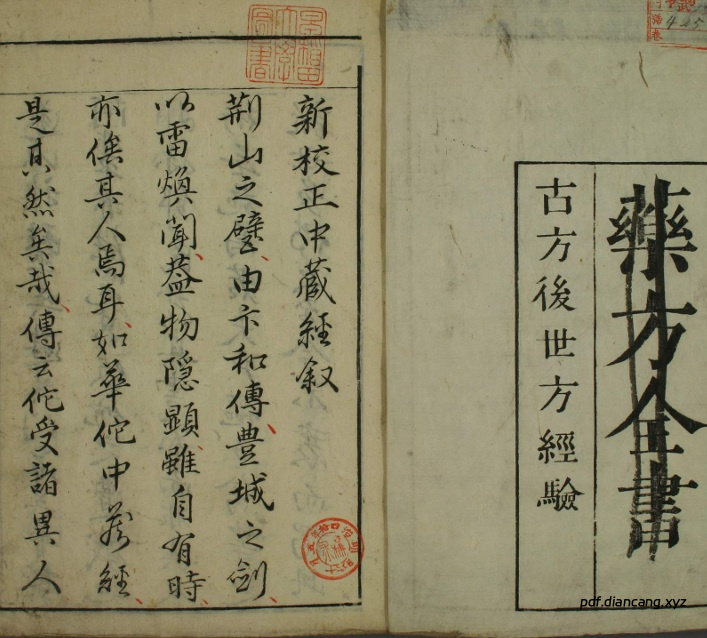 藥方全書
古方後世方經驗
新校正中藏經叙
荊山之璧由卞和傳豊城之劍
以雷煥聞葢物隠顕雖自有時
亦俟其人焉耳如華佗中藏經
是其然矣哉傳云佗受諸異人
pdf.diancang.xyz